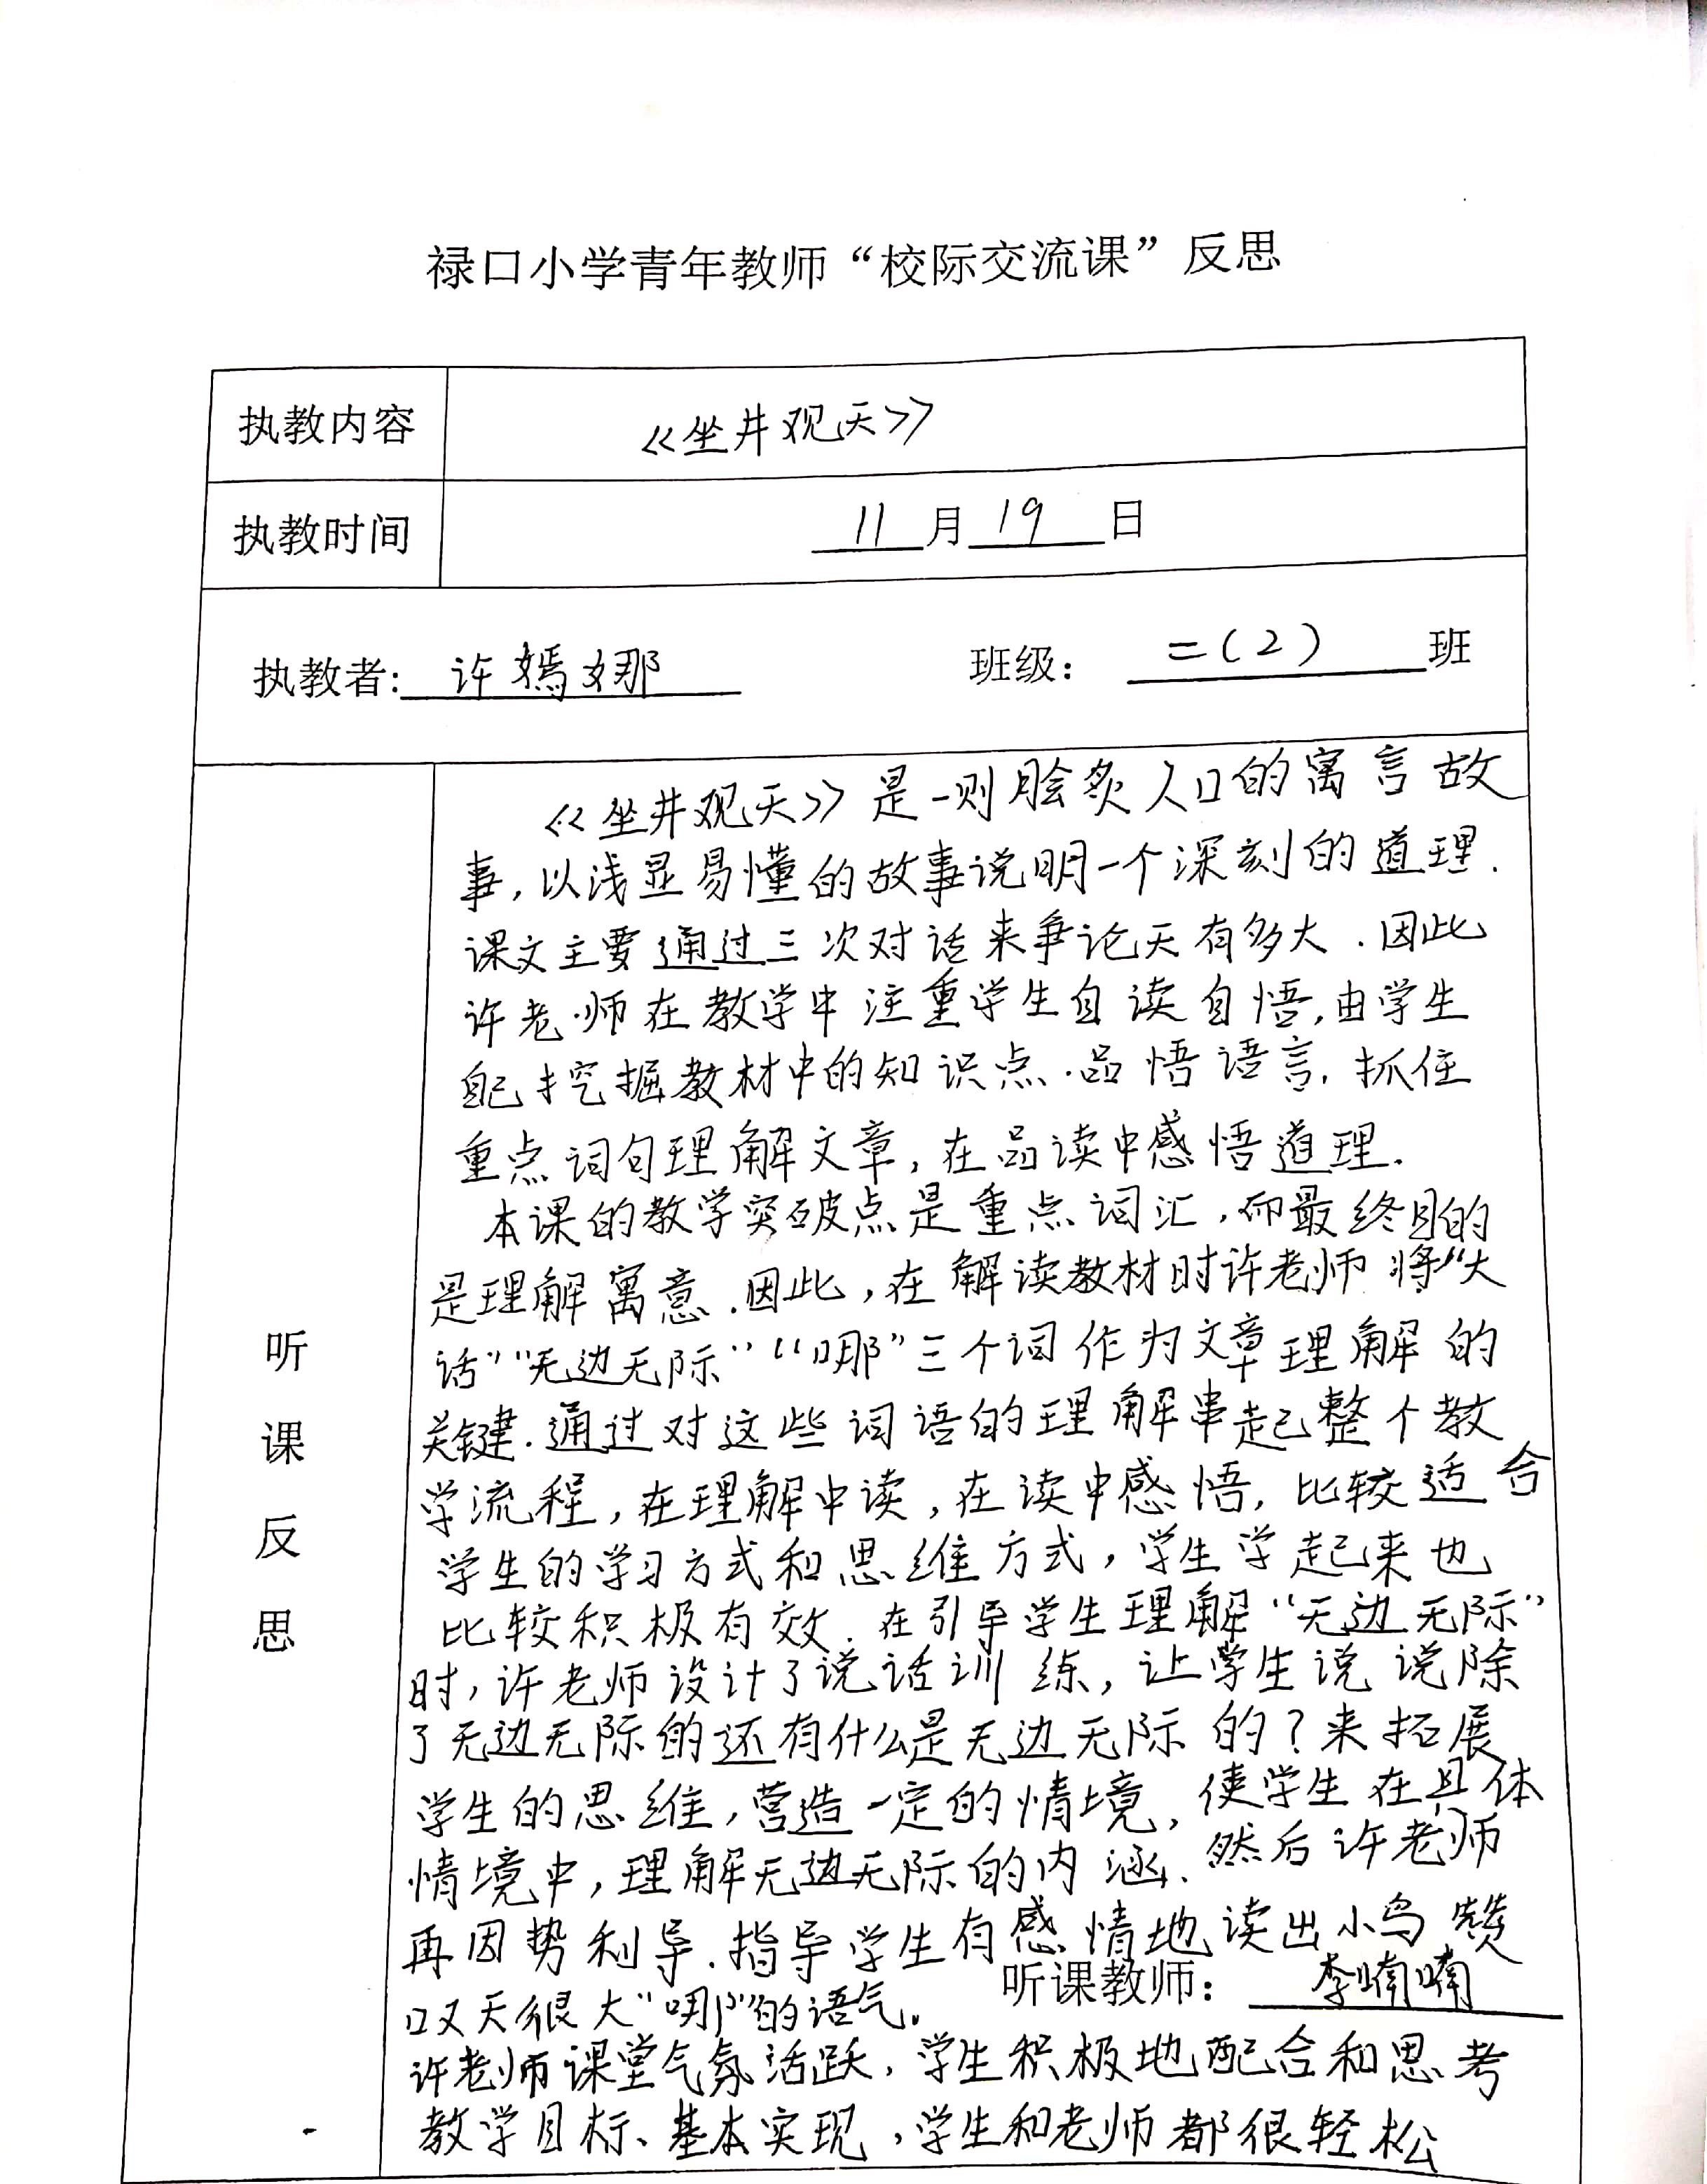 禄口小学青年教师“校际交流课”反思
执教内容 《坐井观天》
执教时间 11月19日
执教者：许嫣娜 班级：二（2）班
听课反思
《坐井观天》是一则脍炙人口的寓言故
事，以浅显易懂的故事说明一个深刻的道理.
课文主要通过三次对话来争论天有多大.因此
许老师在教学中注重学生自读自悟，由学生
自己挖掘教材中的知识点.品悟语言，抓住
重点词句理解文章，在品读中感悟道理.
本课的教学突破点是重点词汇，而最终目的
是理解寓意.因此，在解读教材时许老师将“大
话”“无边无际”“哪”三个词作为文章理解的
关键.通过对这些词语的理解串起整个教
学流程，在理解中读，在读中感悟，比较适合
学生的学习方式和思维方式，学生学起来也
比较积极有效.在引导学生理解“无边无际”
时，许老师设计了说话训练，让学生说说除
了无边无际的还有什么是无边无际的？来拓展
学生的思维，营造一定的情境，使学生在具体
情境中，理解无边无际的内涵.然后许老师
再因势利导.指导学生有感情地读出小鸟赞
叹天很大“哪”的语气。
听课教师：李喃喃
许老师课堂气氛活跃，学生积极地配合和思考
教学目标、基本实现，学生和老师都很轻松